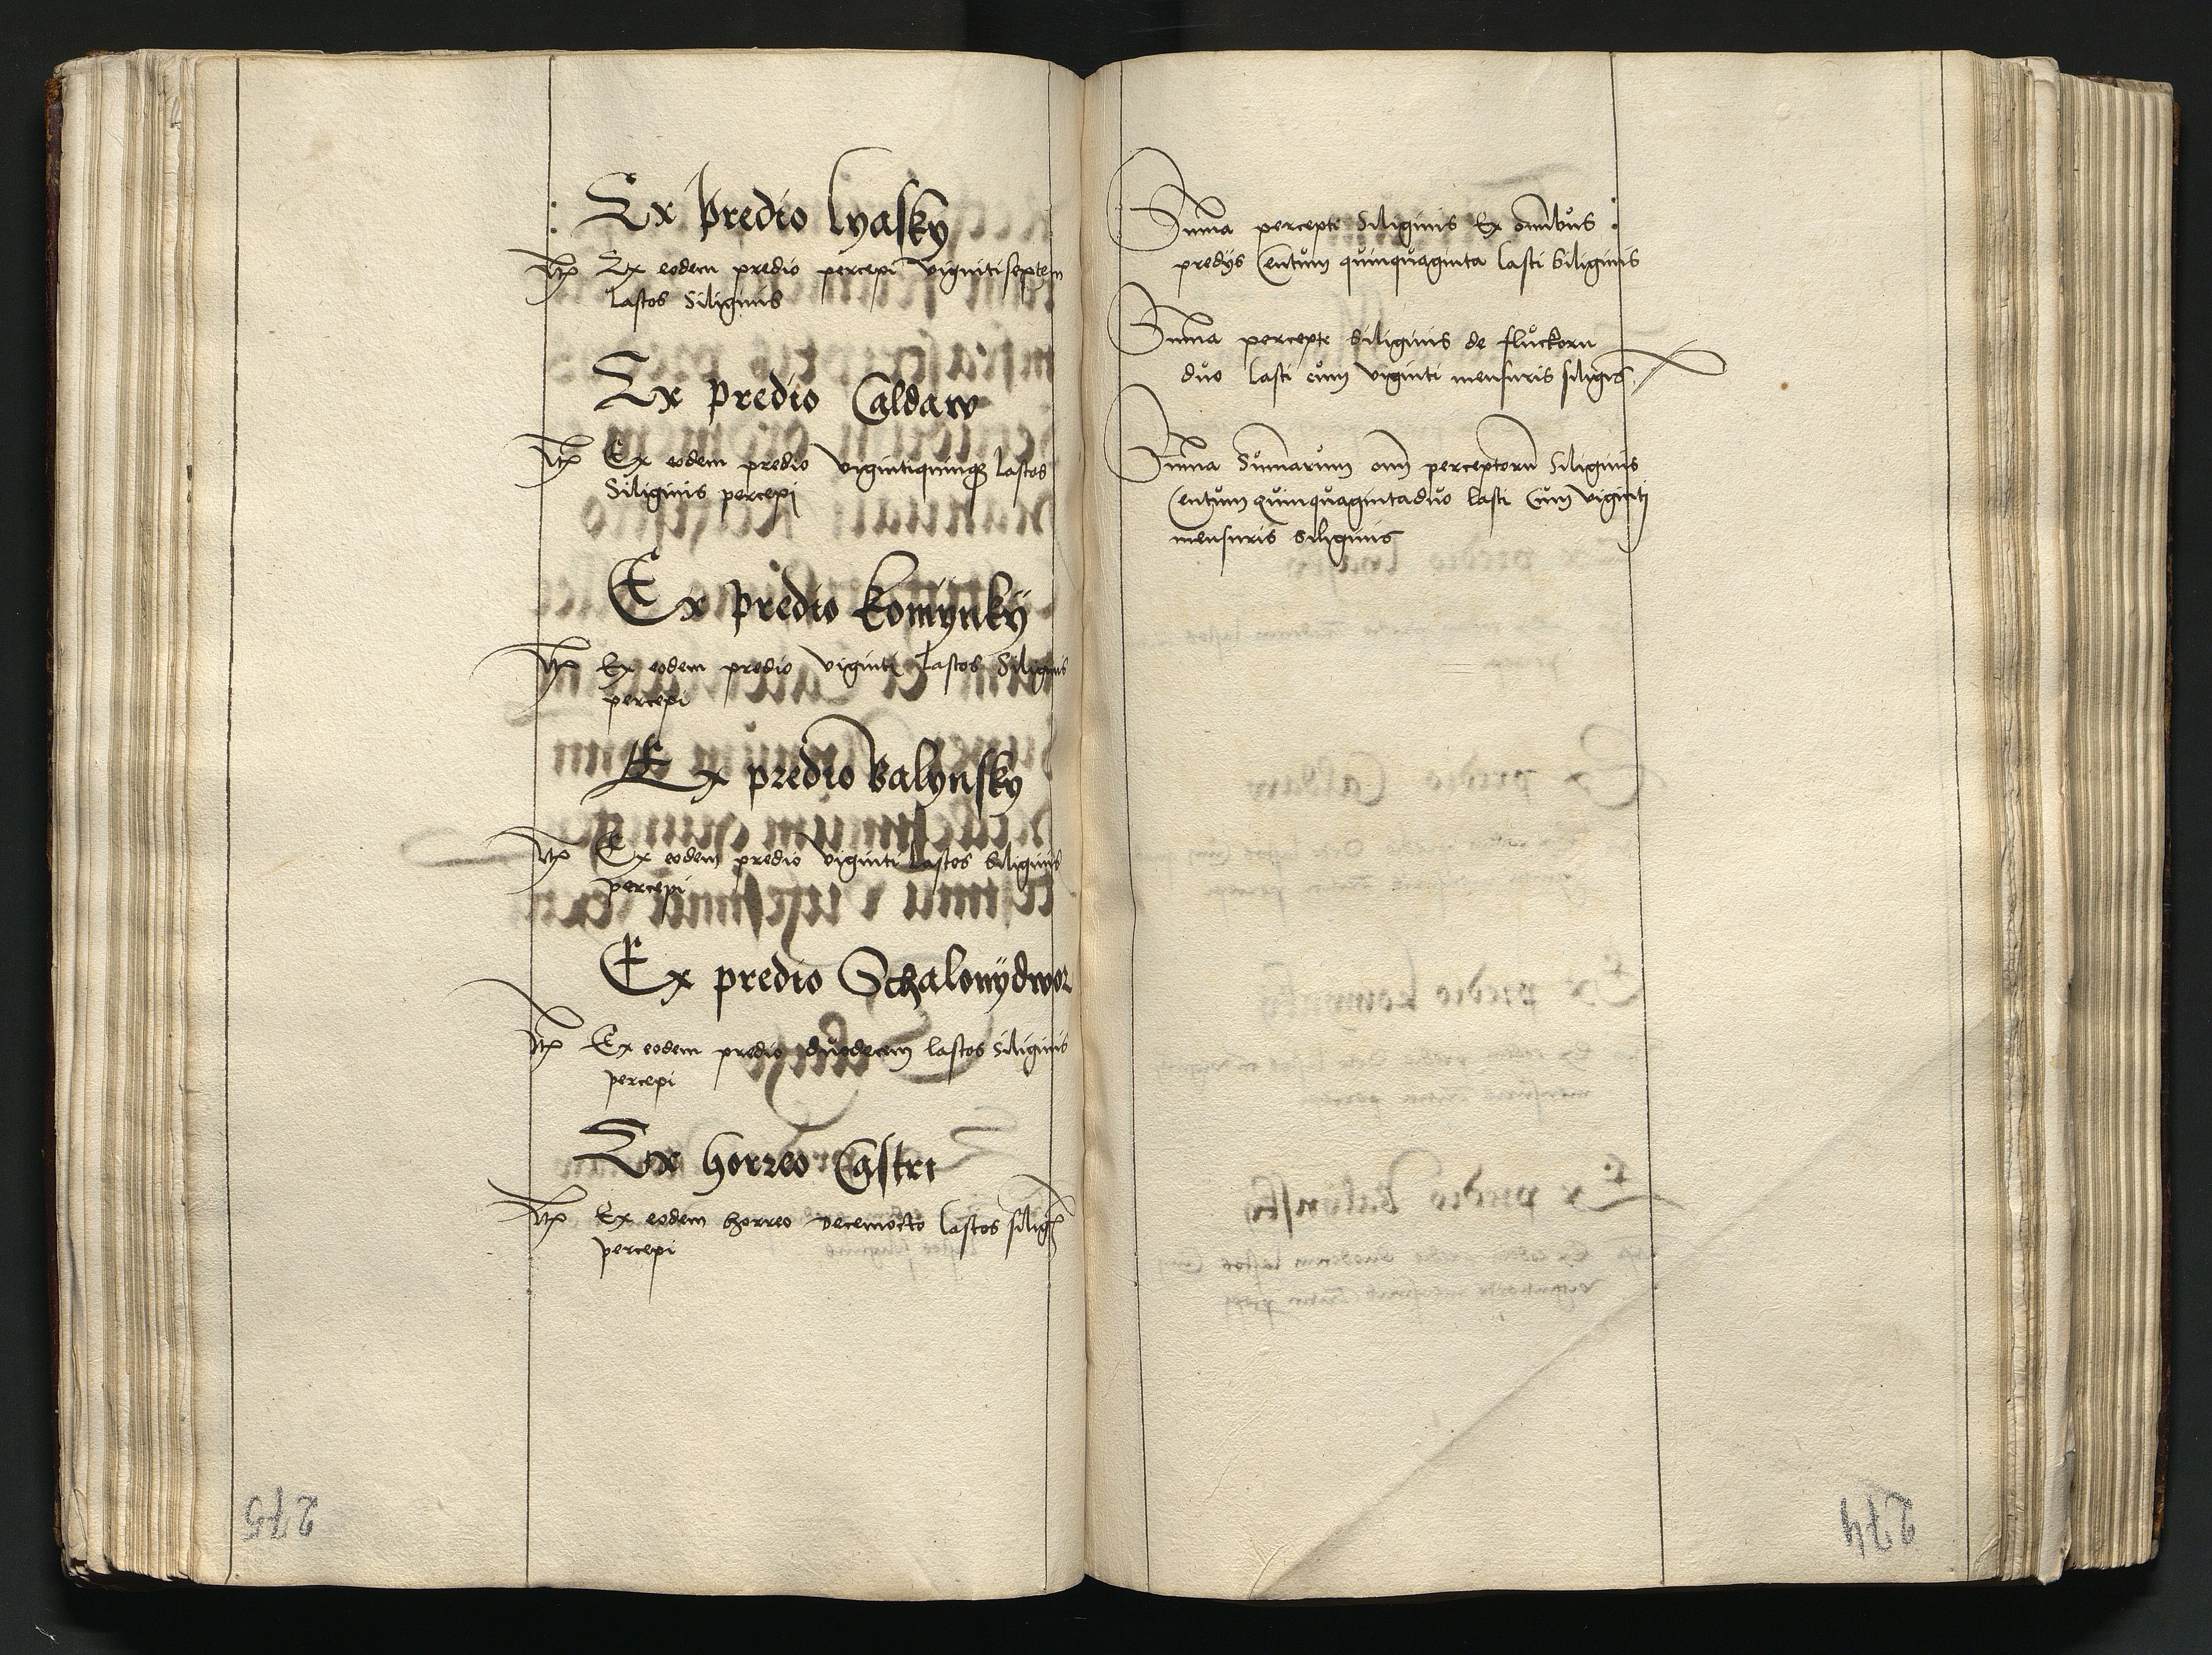 Ex predio lyasky
Itm Ex eodem predio percepi vigintiseptem
lastos Siliginis
Ex predio Caldaw
Itm Ex eodem predio vigintiquinqz lastos
Siliginis percepi
Ex predio komÿnkÿ
Itm Ex eodem predio viginti lastos Siliginis
percepi
Ex predio kalynsky
Itm Ex eodem predio viginti lastos Siliginis
percepi
Ex predio Schalonÿdwor
Itm Ex eodem predio duodecim lastos Siliginis
percepi
Ex horreo Castri
Itm Ex eodem horreo decemocto lastos silig
percepi
275
Suma percepte Siliginis Ex omibus
predys Centum quinquaginta lasti Siliginis
Suma percepte Siliginis de fluckorn
duo lasti cum viginti mensuris siligis
Suma Sumarum om perceptoru Siliginis
Centum quinquagintaduo lasti Cum viginti
mensuris Siliginis
274